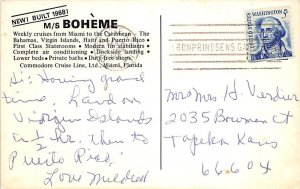 NEW! BUILT 1968!
M/S BOHEME
Weekly cruises from Miami to the Caribbean - The
Bahamas, Virgin Islands, Haiti and Puerto Rico
First Class Staterooms • Modern fin stabilizers
Complete air conditioning • Dockside landing
Lower beds • Private baths • Duty-free shops.
Commodore Cruise Line, Ltd., Miami, Florida
Hi: Having grand
time. Land on
Virgin Islands
in 2 hr. then to
Puerto Rico.
Love Mildred
WASHINGTON
5c
RONPRINDSENS G
Mrs Mrs H. Verdier
2035 Bowman Ct
Topeka Kans
66604